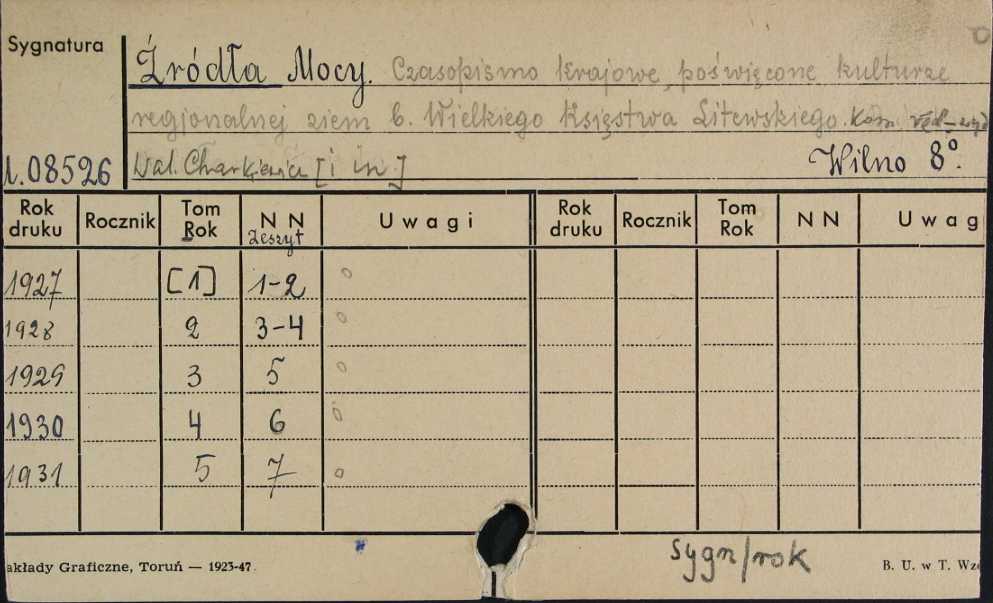 Sygnatura
Źródła Mocy. Czasopismo krajowe, poświęcone kulturze
regjonalnej ziem b. Wielkiego Księstwa Litewskiego. Kom.
08526 Wal. Charkiewicz [i in] Wilno 8°.
Rok druku Rocznik Tom Rok N N Zeszyt Uwagi Rok druku Rocznik Tom Rok N N Uwag
1927 [1] 1-2 o
1928 2 3-4 o
1929 3 5 o
1930 4 6 o
1931 5 7 o
sygn/rok
akłady Graficzne, Toruń — 1923-47. B. U. w T. Wzó